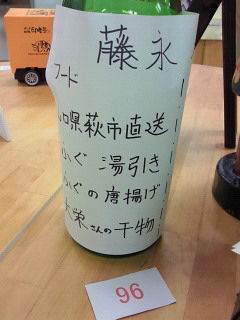 藤永
フード
口県萩市直送
ふぐ 湯引き
ふぐの唐揚げ
大栄さんの干物
96